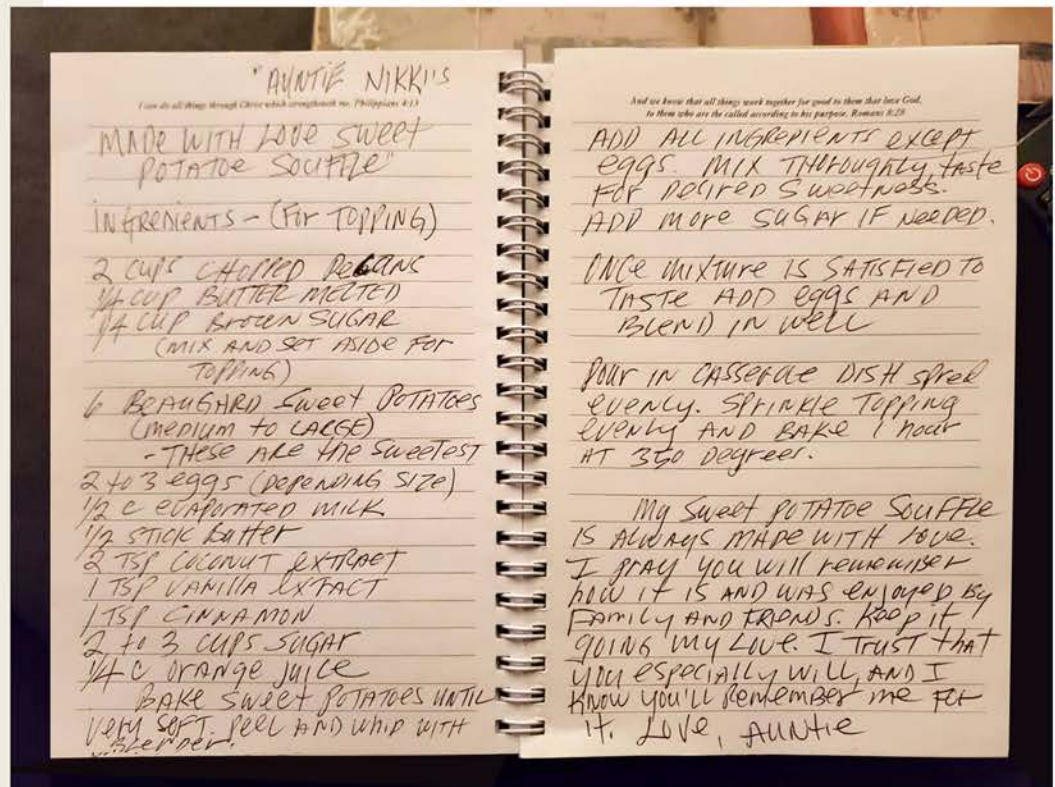 "AUNTIE NIKKI'S
I can do all things through Christ which strengtheneth me. Philippians 4:13
MADE WITH LOVE SWEET
POTATOE SOUFFLE"
INGREDIENTS - (FOR TOPPING)
2 CUPS CHOPPED PECANS
1/4 CUP BUTTER MELTED
1/4 CUP BROWN SUGAR
(MIX AND SET ASIDE FOR
TOPPING)
6 BEAUGARD SWEET POTATOES
(MEDIUM TO LARGE)
- THESE ARE THE SWEETEST
2 to 3 eggs (DEPENDING SIZE)
1/2 C EVAPORATED MILK
1/2 STICK Butter
2 TSP COCONUT EXTRACT
1 TSP VANILLA EXTACT
1 TSP CINNAMON
2 to 3 CUPS SUGAR
1/4 C ORANGE JUICE
BAKE SWEET POTATOES UNTIL
VERY SOFT. PEEL AND WHIP WITH
BLENDER.
And we know that all things work together for good to them that love God,
to them who are the called according to his purpose. Romans 8:28
ADD ALL INGREDIENTS EXCEPT
EGGS. MIX THOROUGHLY, TASTE
FOR DESIRED SWEETNESS.
ADD MORE SUGAR IF NEEDED.
ONCE MIXTURE IS SATISFIED TO
TASTE ADD EGGS AND
BLEND IN WELL
POUR IN CASSEROLE DISH SPRED
EVENLY. SPRINKLE TOPPING
EVENLY AND BAKE 1 HOUR
AT 350 DEGREES.
My SWEET POTATOE SOUFFLE
IS ALWAYS MADE WITH LOVE.
I PRAY YOU WILL REMEMBER
HOW IT IS AND WAS ENJOYED BY
FAMILY AND FRIENDS. KEEP IT
GOING MY LOVE. I TRUST THAT
YOU ESPECIALLY WILL, AND I
KNOW YOU'LL REMEMBER ME FOR
IT. LOVE, AUNTIE